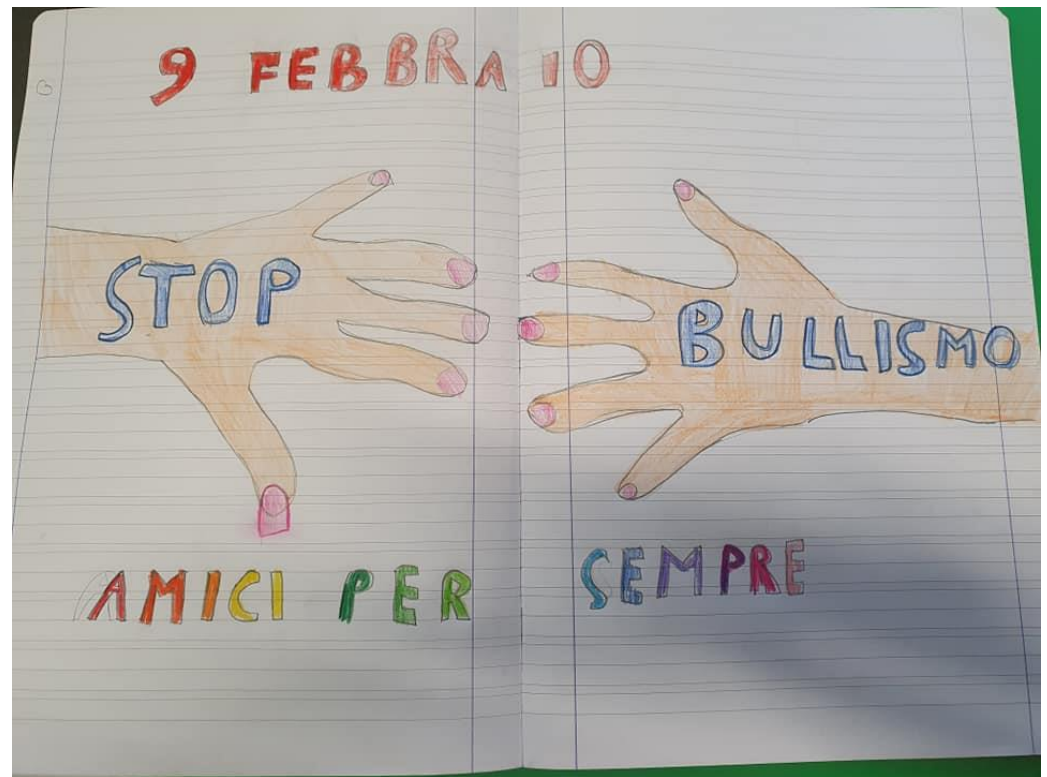 9 FEBBRAIO
STOP BULLISMO
AMICI PER SEMPRE